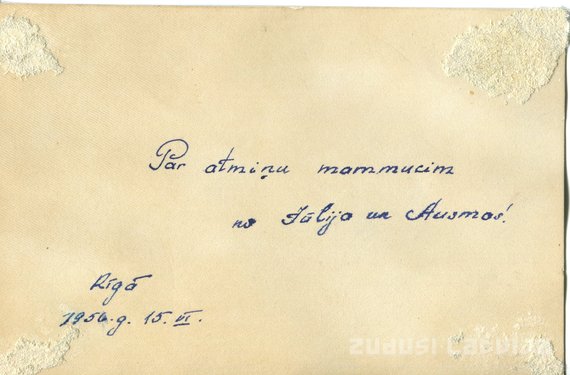 Par atmiņu mammucim
no Jūlija un Ausmas!
Rīgā
1956.g. 15. VI.
zudusi Latvija